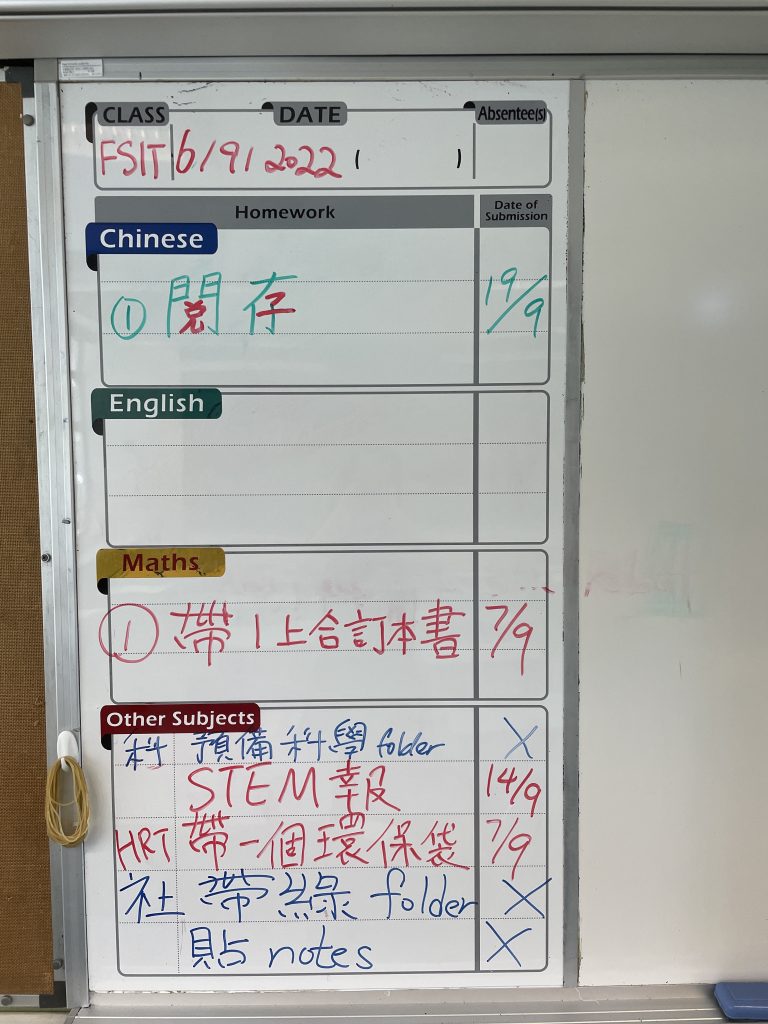 CLASS DATE Absentee(s)
FSIT 6/9/2022 ( )
Homework Date of Submission
Chinese
① 閱存 19/9
English
Maths
① 帶1上合訂本書 7/9
Other Subjects
科 預備科學folder X
STEM報 14/9
HRT 帶一個環保袋 7/9
社 帶綠folder X
貼notes X